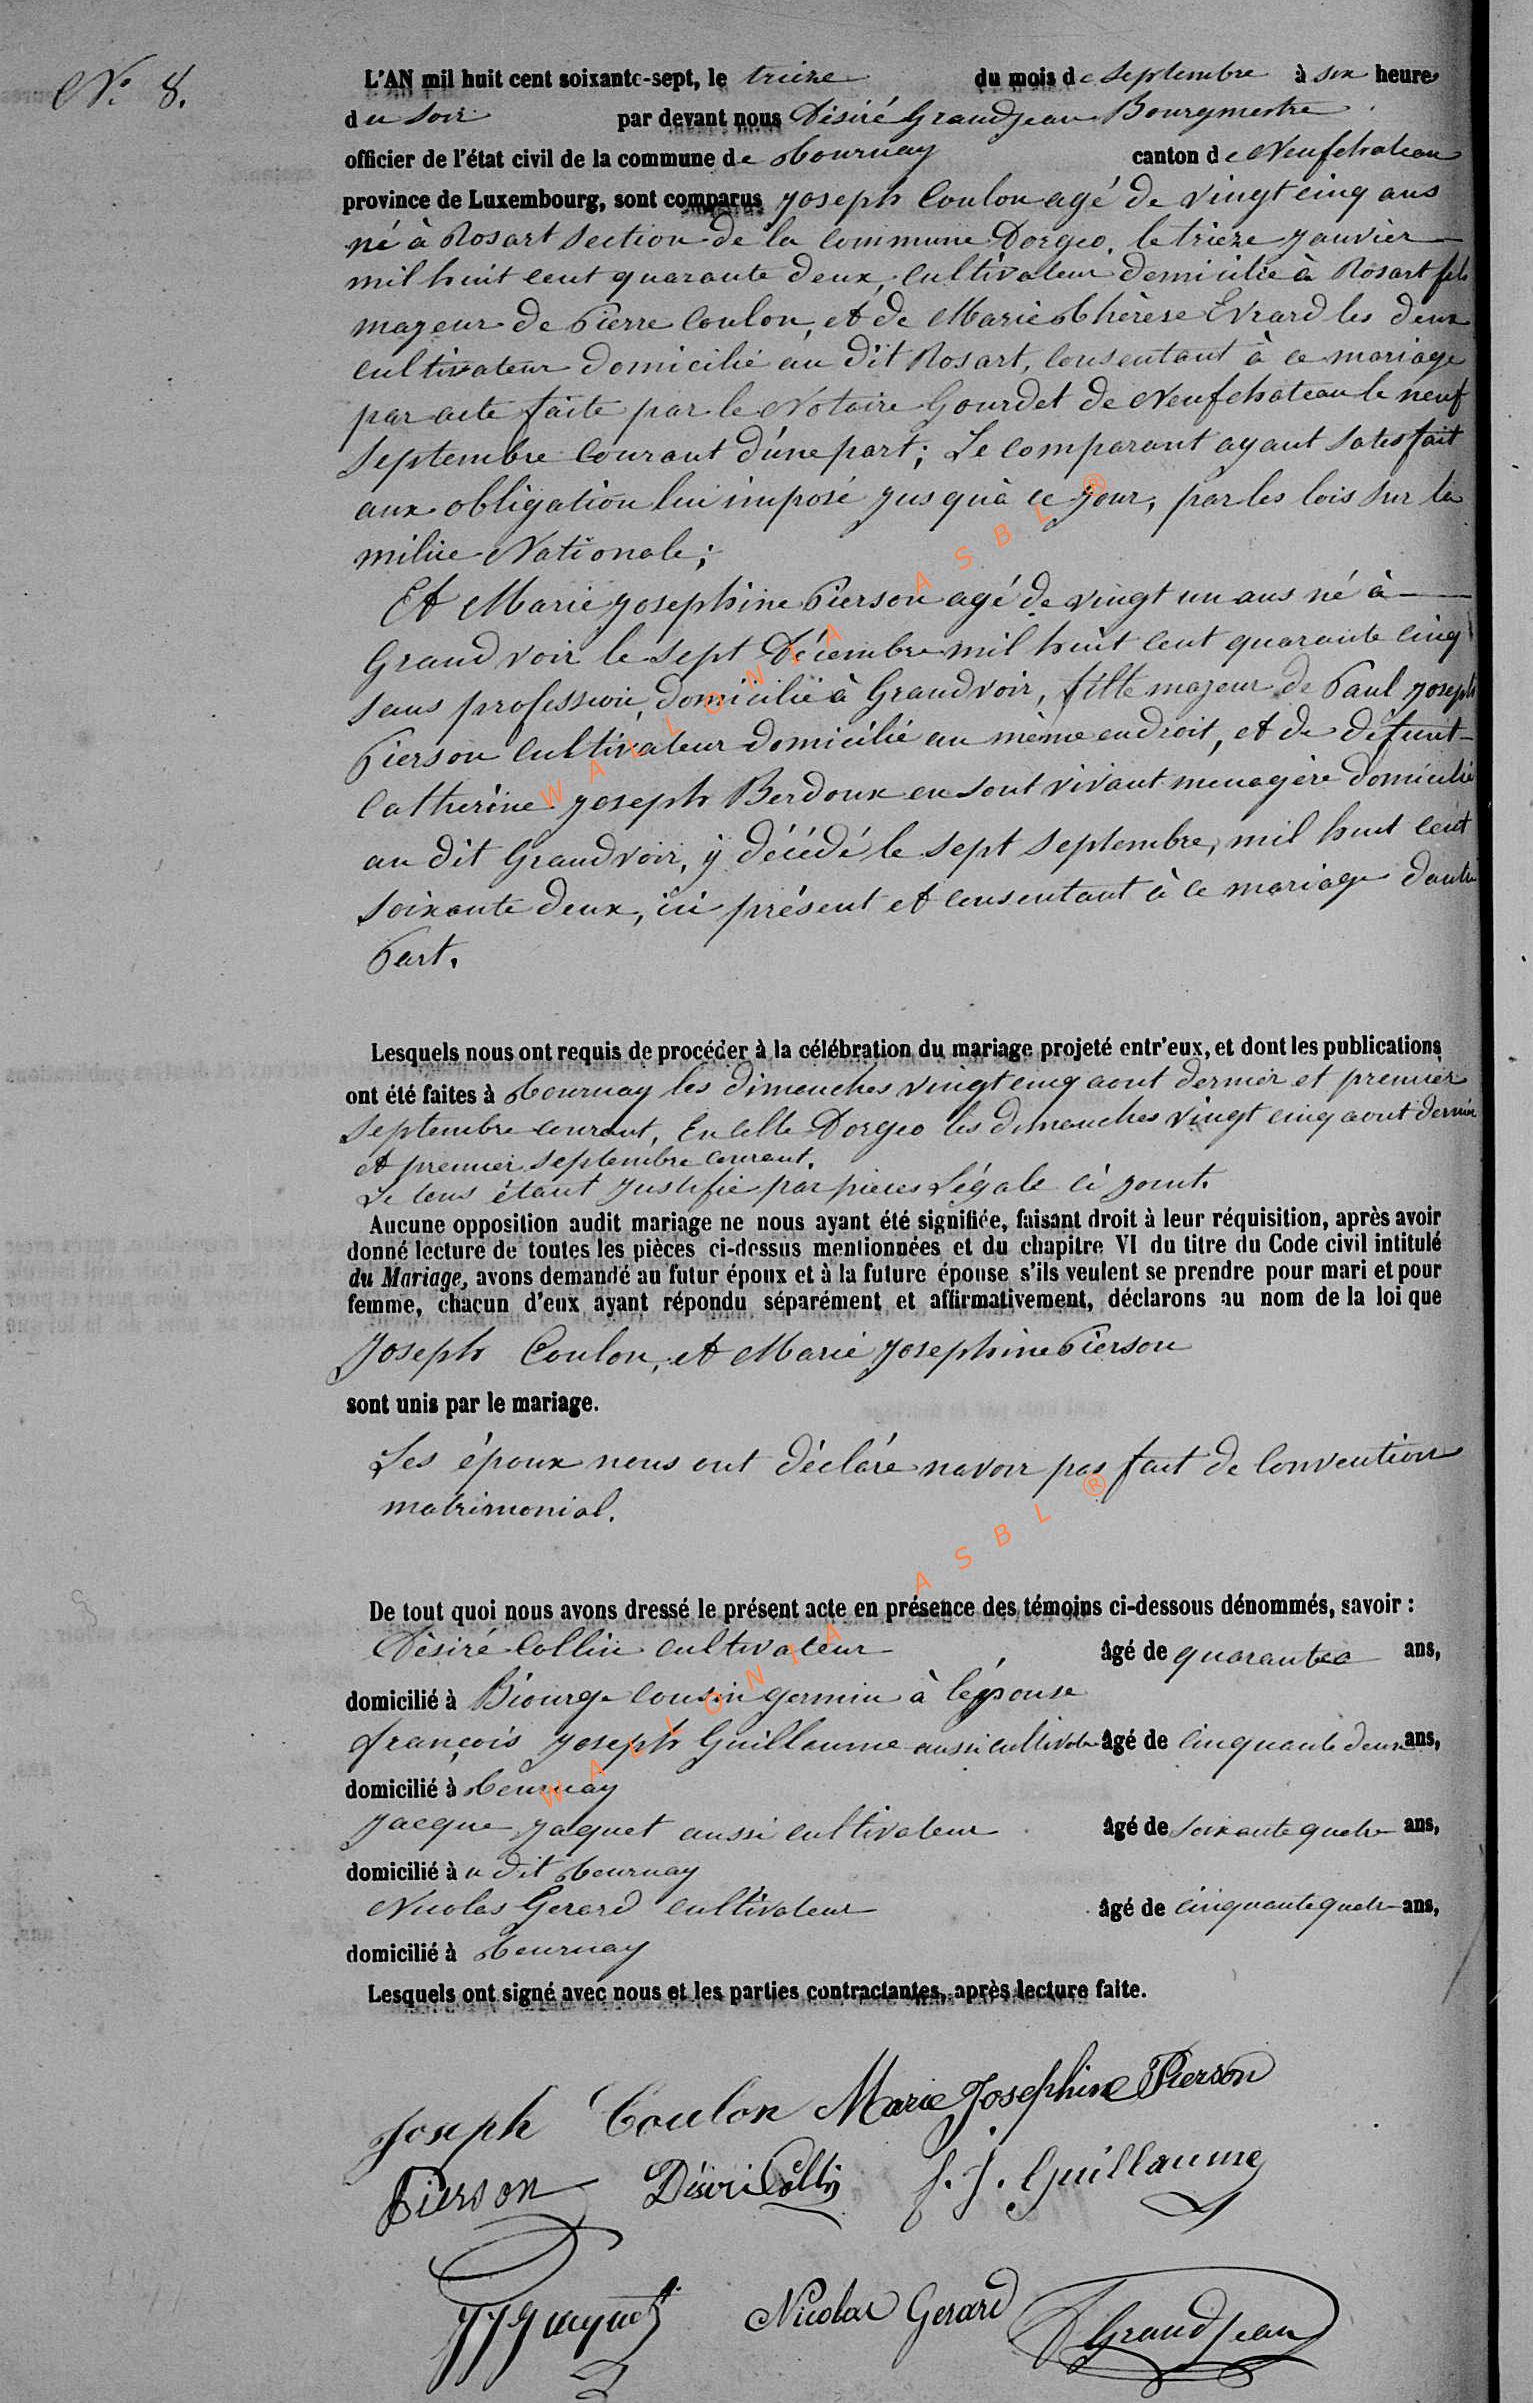 N° 8.
L'AN mil huit cent soixante-sept, le trieze du mois de Septembre à six heures
du soir par devant nous Désiré Grandjean Bourgmestre
officier de l'état civil de la commune de Tournay canton de Neufchateau
province de Luxembourg, sont comparus Joseph Coulon agé de vingt cinq ans
né à Rosart Section de la Commune Dorgeo, le trieze janvier
mil huit cent quarante deux, Cultivateur domicilié à Rosart fils
majeur de Pierre Coulon, et de Marie Thérèse Evrard les deux
cultivateur domicilié au dit Rosart, Consentant à ce mariage
par acte faite par le Notaire Gourdet de Neufchateau le neuf
Septembre Courant d'une part; Le Comparant ayant satisfait
aux obligation lui imposé jusqu'à ce jour, par les lois sur la
milice Nationale;
Et Marie Josephine Pierson agé de vingt un ans né à
Grandvoir le sept Décembre mil huit cent quarante cinq
sans profession, domicilié à Grandvoir, fille majeur de Paul Joseph
Pierson Cultivateur domicilié au même endroit, et de défunt
Catherine Joseph Berdoux en sont vivant menagère domicilié
au dit Grandvoir, y décédé le sept Septembre, mil huit cent
soixante deux, ici présent et consentant à ce mariage dautre
Part.
Lesquels nous ont requis de procéder à la célébration du mariage projeté entr'eux, et dont les publications
ont été faites à Tournay les dimenches vingt cinq aout dernier et premier
Septembre courant, En celle Dorgeo les dimenches vingt cinq aout dernier
et premier Septembre Courant.
Le tous étant justifié par pieces Légale ci joint.
Aucune opposition audit mariage ne nous ayant été signifiée, faisant droit à leur réquisition, après avoir
donné lecture de toutes les pièces ci-dessus mentionnées et du chapitre VI du titre du Code civil intitulé
du Mariage, avons demandé au futur époux et à la future épouse s'ils veulent se prendre pour mari et pour
femme, chacun d'eux ayant répondu séparément et affirmativement, déclarons au nom de la loi que
Joseph Coulon, et Marie Josephine Pierson
sont unis par le mariage.
Les époux nous ont déclaré navoir pas fait de Convention
matrimonial.
De tout quoi nous avons dressé le présent acte en présence des témoins ci-dessous dénommés, savoir :
Désiré Collin cultivateur âgé de quarante ans,
domicilié à Biourge Cousin germin à lépouse
françois Joseph Guillaume aussi cultivate âgé de Cinquante deux ans,
domicilié à Tournay
Jacque Jaquet aussi cultivateur âgé de soixante quatre ans,
domicilié à u dit Tournay
Nicolas Gerard Cultivateur âgé de Cinquante quatre ans,
domicilié à Tournay
Lesquels ont signé avec nous et les parties contractantes, après lecture faite.
Joseph Coulon Marie Josephine Pierson
Pierson Désiré Collin f. J. Guillaume
JJ Jacquet Nicolas Gerard D Grandjean
WALLONIA ASBL ®
WALLONIA ASBL ®